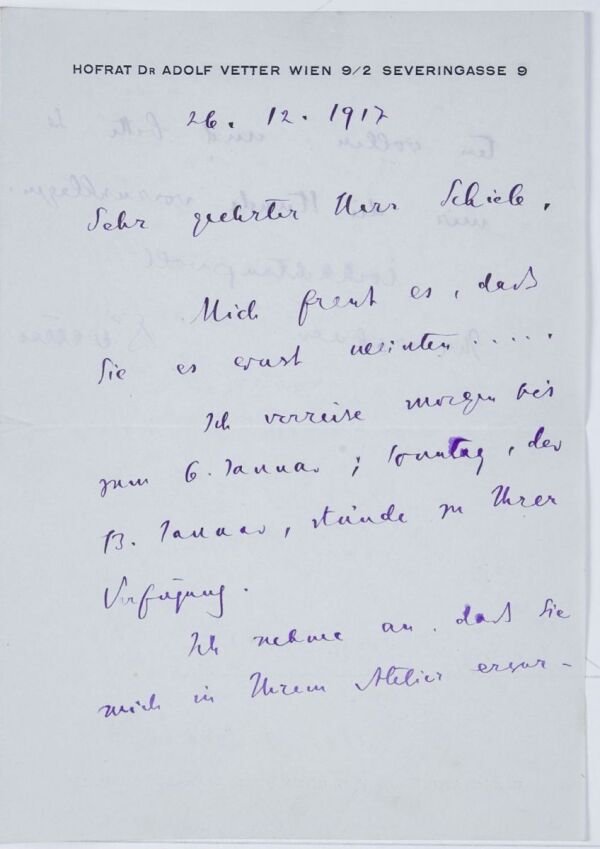 HOFRAT DR ADOLF VETTER WIEN 9/2 SEVERINGASSE 9
26. 12. 1917
Sehr geehrter Herr Schiele,
Mich freut es, dass
Sie es ernst meinten.....
Ich verreise morgen bis
zum 6. Januar; Sonntag, der
13. Januar, stünde zu Ihrer
Verfügung.
Ich nehme an, dass Sie
mich in Ihrem Atelier erwar-